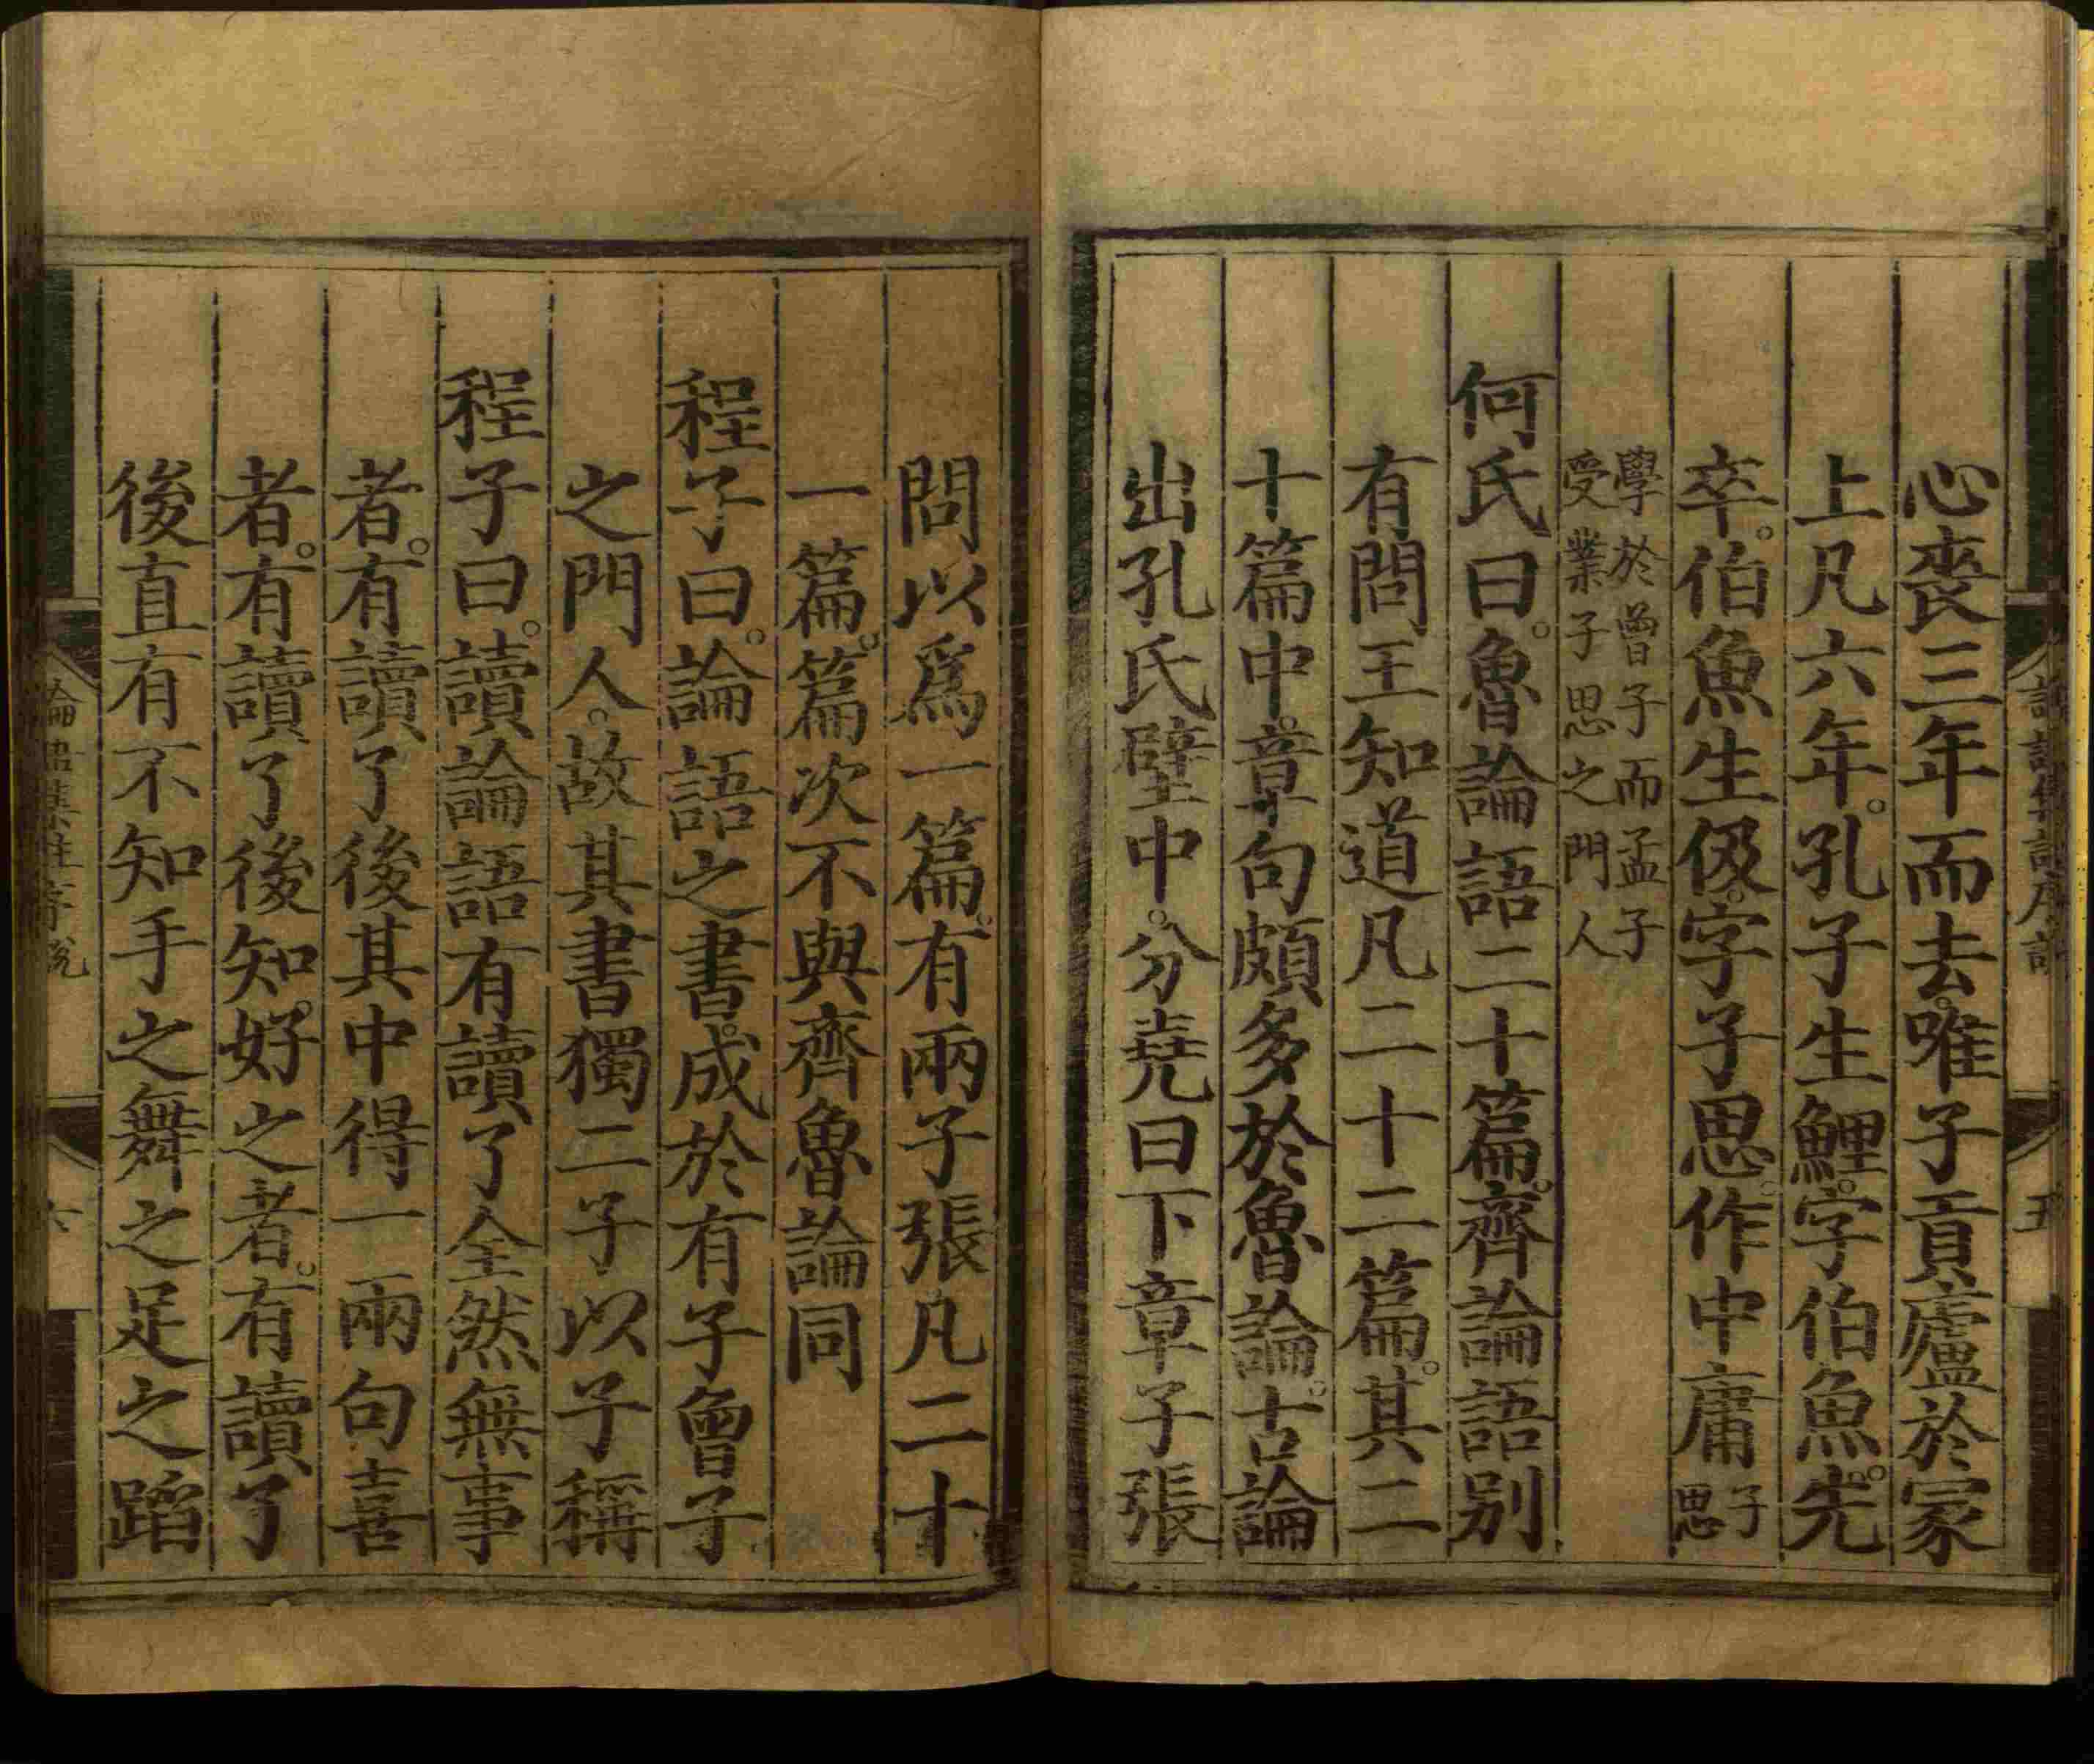 心喪三年而去。唯子貢廬於冡
上凡六年。孔子生鯉。字伯魚。先
卒。伯魚生伋。字子思。作中庸子思
學於曾子而孟子
受業子思之門人
何氏曰。魯論語二十篇。齊論語别
有問王知道凡二十二篇。其二
十篇中。章句頗多於魯論。古論
出孔氏壁中。分堯曰下章子張
問以爲一篇。有兩子張凡二十
一篇。篇次不與齊魯論同
程子曰。論語之書。成於有子曾子
之門人。故其書獨二子以子稱
程子曰。讀論語有讀了全然無事
者。有讀了後其中得一兩句喜
者。有讀了後知好之者。有讀了
後直有不知手之舞之足之蹈
論語集註序説
六
五